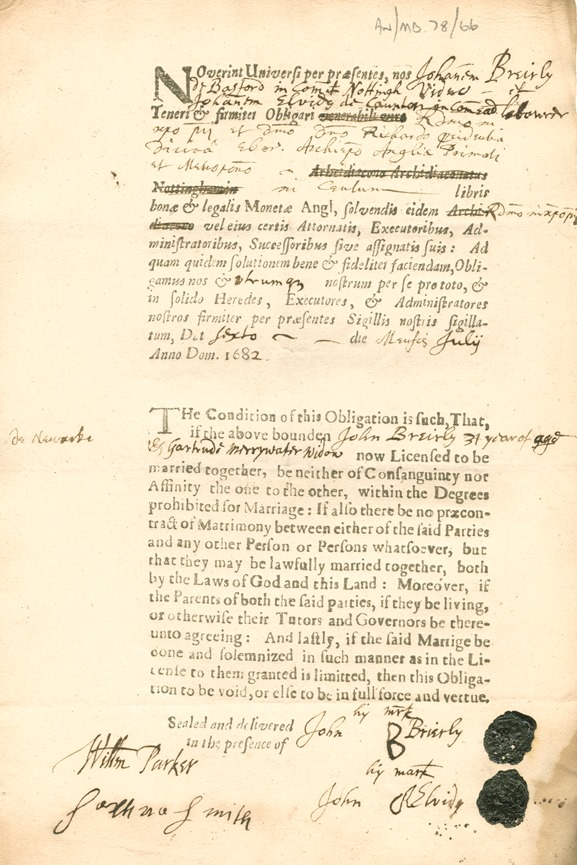 AN/MB 78/66
NOverint Universi per præsentes, nos Johanem Breirly
de Basford in Comit Nottingh Viduo et
Johanem Elvidg de Caunton in Com ead labourer
Teneri & firmiter Obligari venerabili viro
xpo pri et Dno Dno Richardo
Divina Ebor. Archiepo Angliæ Primati
et Metropono Archidiacono Archidiaconatus
Nottinghamiæ in Centum libris
bonæ & legalis Monetæ Angl, solvendis eidem
vel eius certis Attornatis, Executoribus, Ad-
ministratoribus, Successoribus sive assignatis suis: Ad
quam quidem solutionem bene & fideliter faciendam, Obli-
gamus nos & utrumqu nostrum per se pro toto, &
in solido Heredes, Executores, & Administratores
nostros firmiter per præsentes Sigillis nostris sigilla-
tum, Dat sexto die Mensis Julij
Anno Dom. 1682.
THe Condition of this Obligation is such, That,
if the above bounden John Breirly 31 year of age
de Newarke
& Gartrude Merrywater Widow now Licensed to be
married together, be neither of Consanguinty nor
Affinity the one to the other, within the Degrees
prohibited for Marriage: If also there be no præcon-
tract of Matrimony between either of the said Parties
and any other Person or Persons whatsoever, but
that they may be lawfully married together, both
by the Laws of God and this Land: Moreover, if
the Parents of both the said parties, if they be living,
or otherwise their Tutors and Governors be there-
unto agreeing: And lastly, if the said Marrige be
done and solemnized in such manner as in the Li-
cense to them granted is limitted, then this Obliga-
tion to be void, or else to be in full force and vertue.
Sealed and delivered
in the presence of
his mrk
John B Brierly
Willm Parker
his mark
John Elvidg
Smith